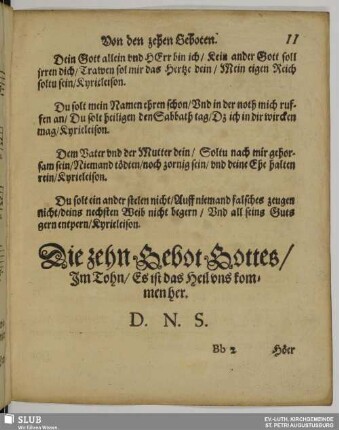 Von den zehen Geboten. 11
Dein Gott allein vnd HErr bin ich / Kein ander Gott soll
jrren dich / Trawen sol mir das Hertze dein / Mein eigen Reich
soltu sein / Kyrieleison.
Du solt mein Namen ehren schon / Vnd in der noth mich ruf-
fen an / Du solt heiligen den Sabbath tag / Dz ich in dir wircken
mag / Kyrieleison.
Dem Vater vnd der Mutter dein / Soltu nach mir gehor-
sam sein / Niemand tödten / noch zornig sein / vnd deine Ehe halten
rein / Kyrieleison.
Du solt ein ander stelen nicht / Auff niemand falsches zeugen
nicht / deins nechsten Weib nicht begern / Vnd all seins Guts
gern entpern / Kyrieleison.
Die zehn Gebot Gottes /
Jm Tohn / Es ist das Heil vns kom-
men her.
D. N. S.
Bb 2 Höer
SLUB
Wir führen Wissen.
EV.-LUTH. KIRCHGEMEINDE
ST. PETRI AUGUSTUSBURG